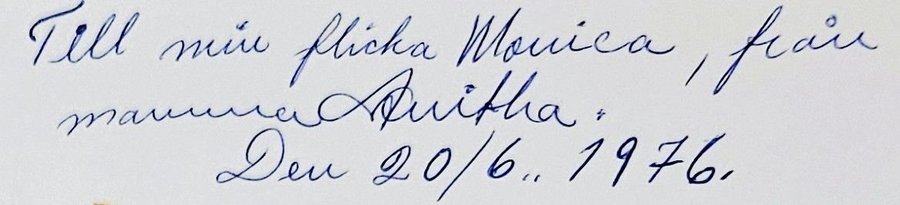 Till min flicka Monica, från
mamma Anitha.
Den 20/6.. 1976.